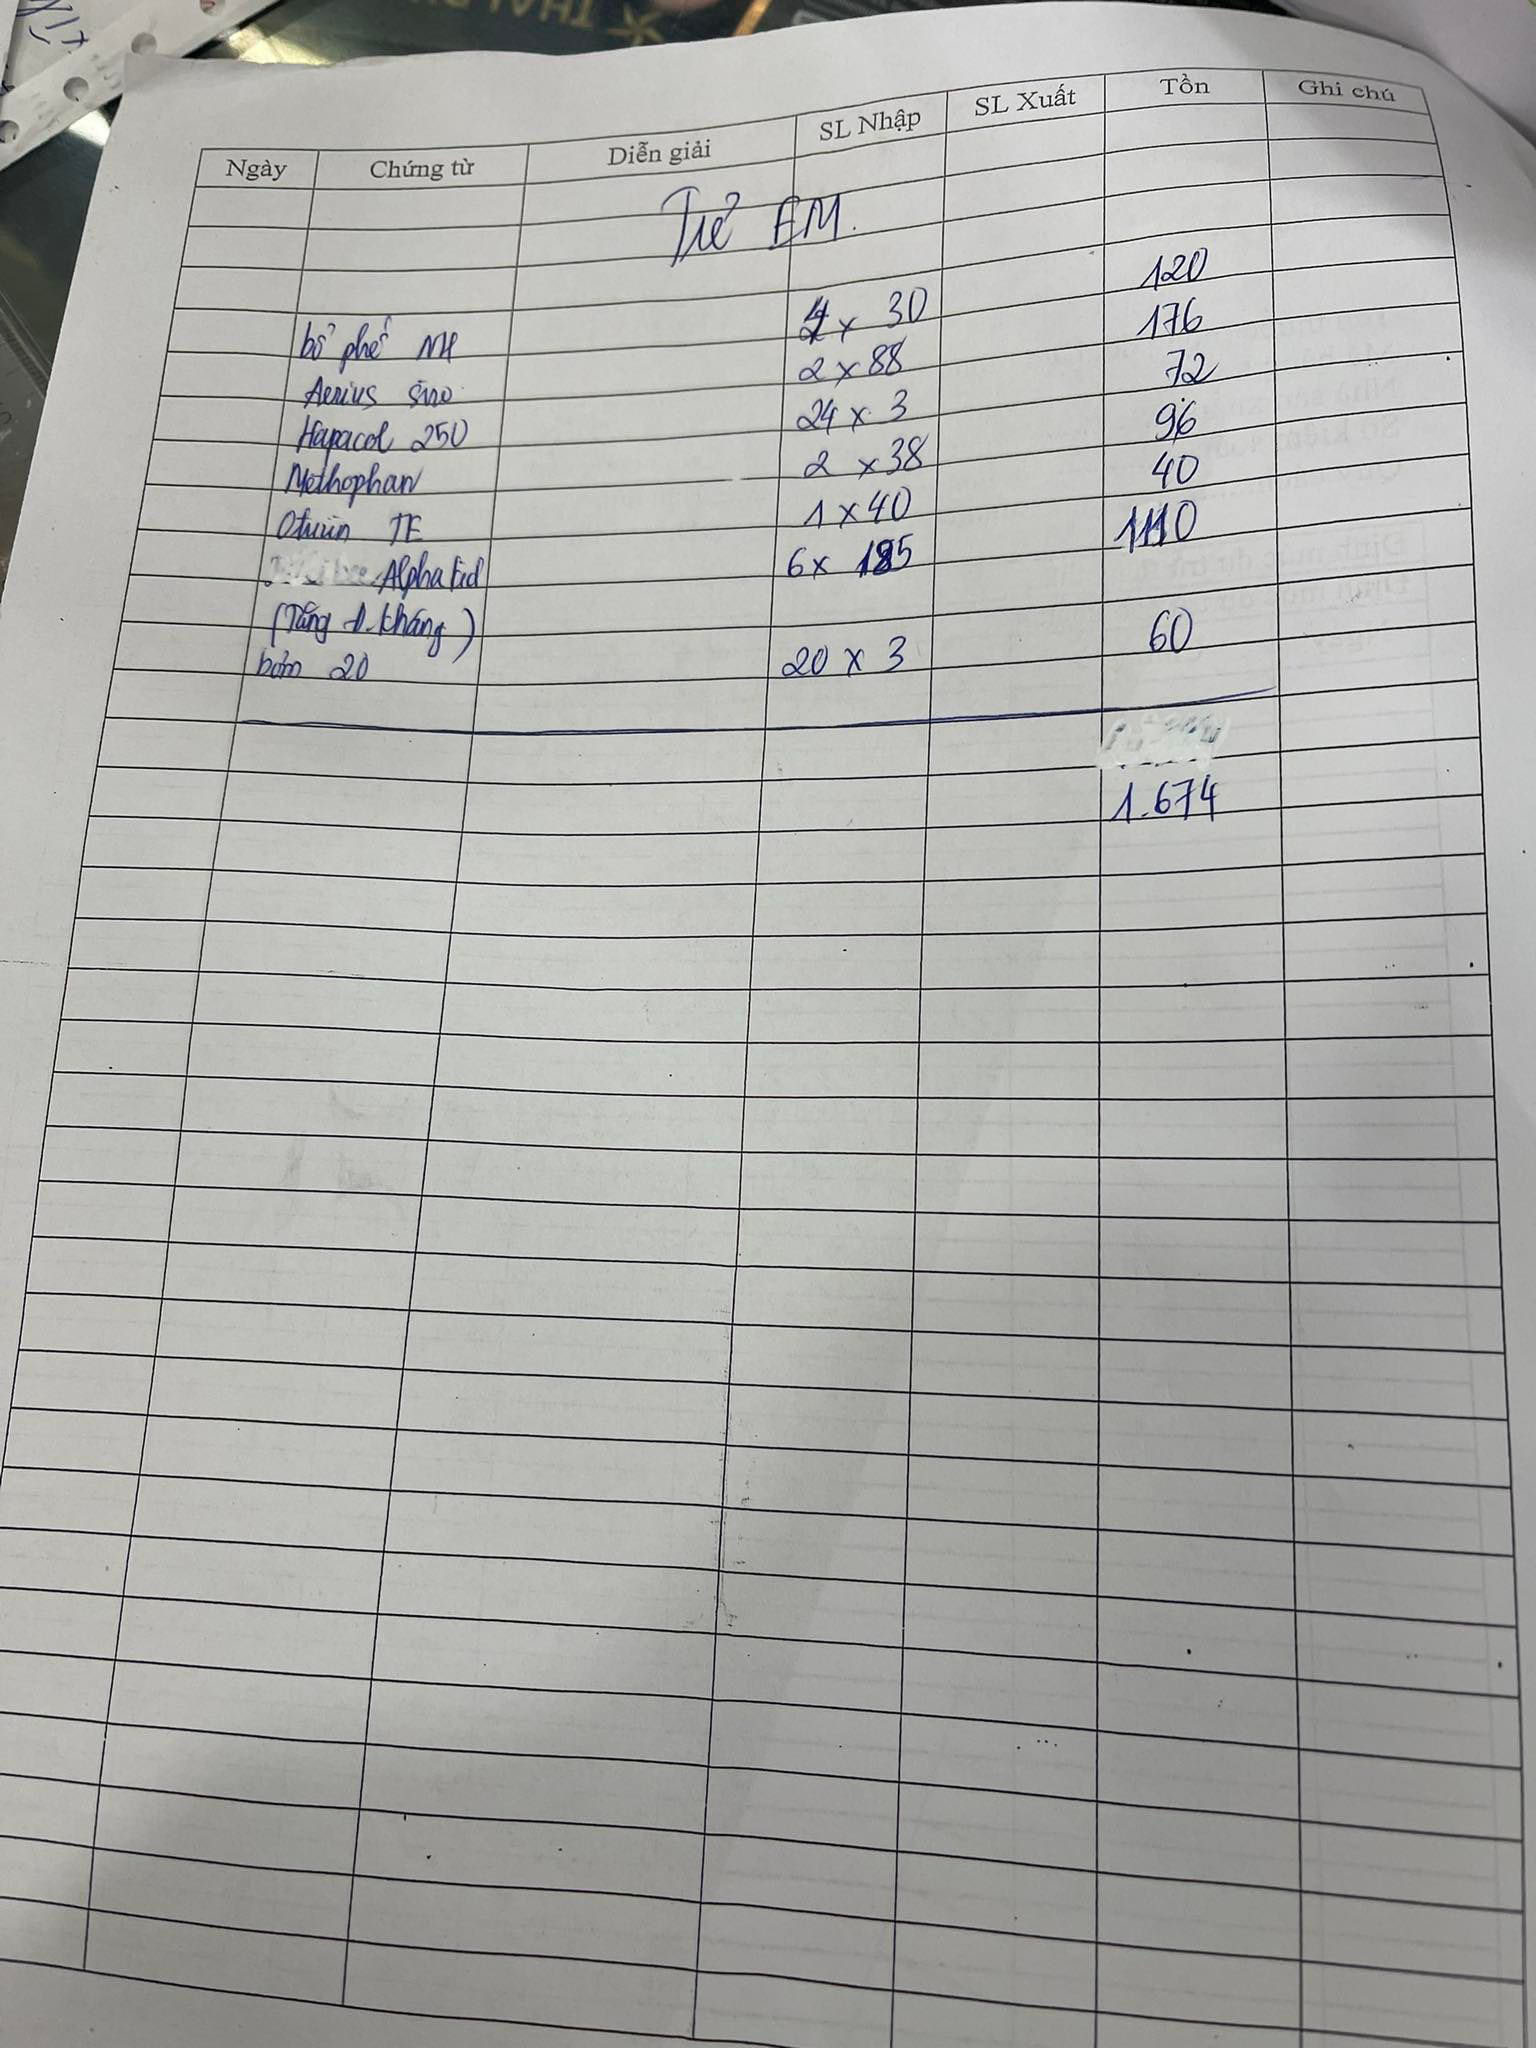 Ngày Chứng từ Diễn giải SL Nhập SL Xuất Tồn Ghi chú
Trẻ EM.
bổ phế NH 4 x 30 120
Aerius siro 2 x 88 176
Hapacol 250 24 x 3 72
Methophan 2 x 38 96
Otrivin TE 1 x 40 40
Alpha kid 6 x 185 1110
(Tăng đ.kháng)
bơm 20 20 x 3 60
1.674